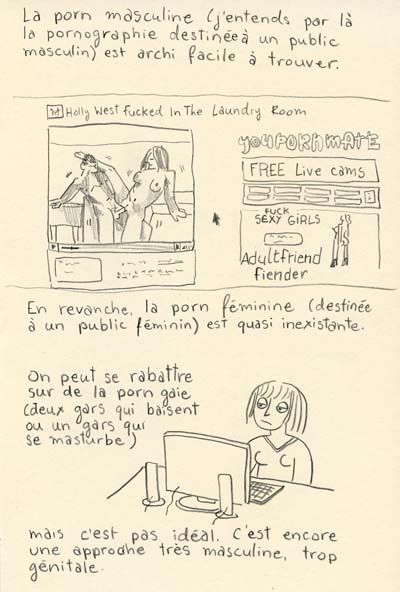 La porn masculine (j'entends par là
la pornographie destinée à un public
masculin) est archi facile à trouver.
Holly West Fucked In The Laundry Room
YOUPORNMATE
FREE Live cams
FUCK
SEXY GIRLS
Adultfriend
fiender
En revanche, la porn féminine (destinée
à un public féminin) est quasi inexistante.
On peut se rabattre
sur de la porn gaie
(deux gars qui baisent
ou un gars qui
se masturbe)
mais c'est pas idéal. C'est encore
une approche très masculine, trop
génitale.